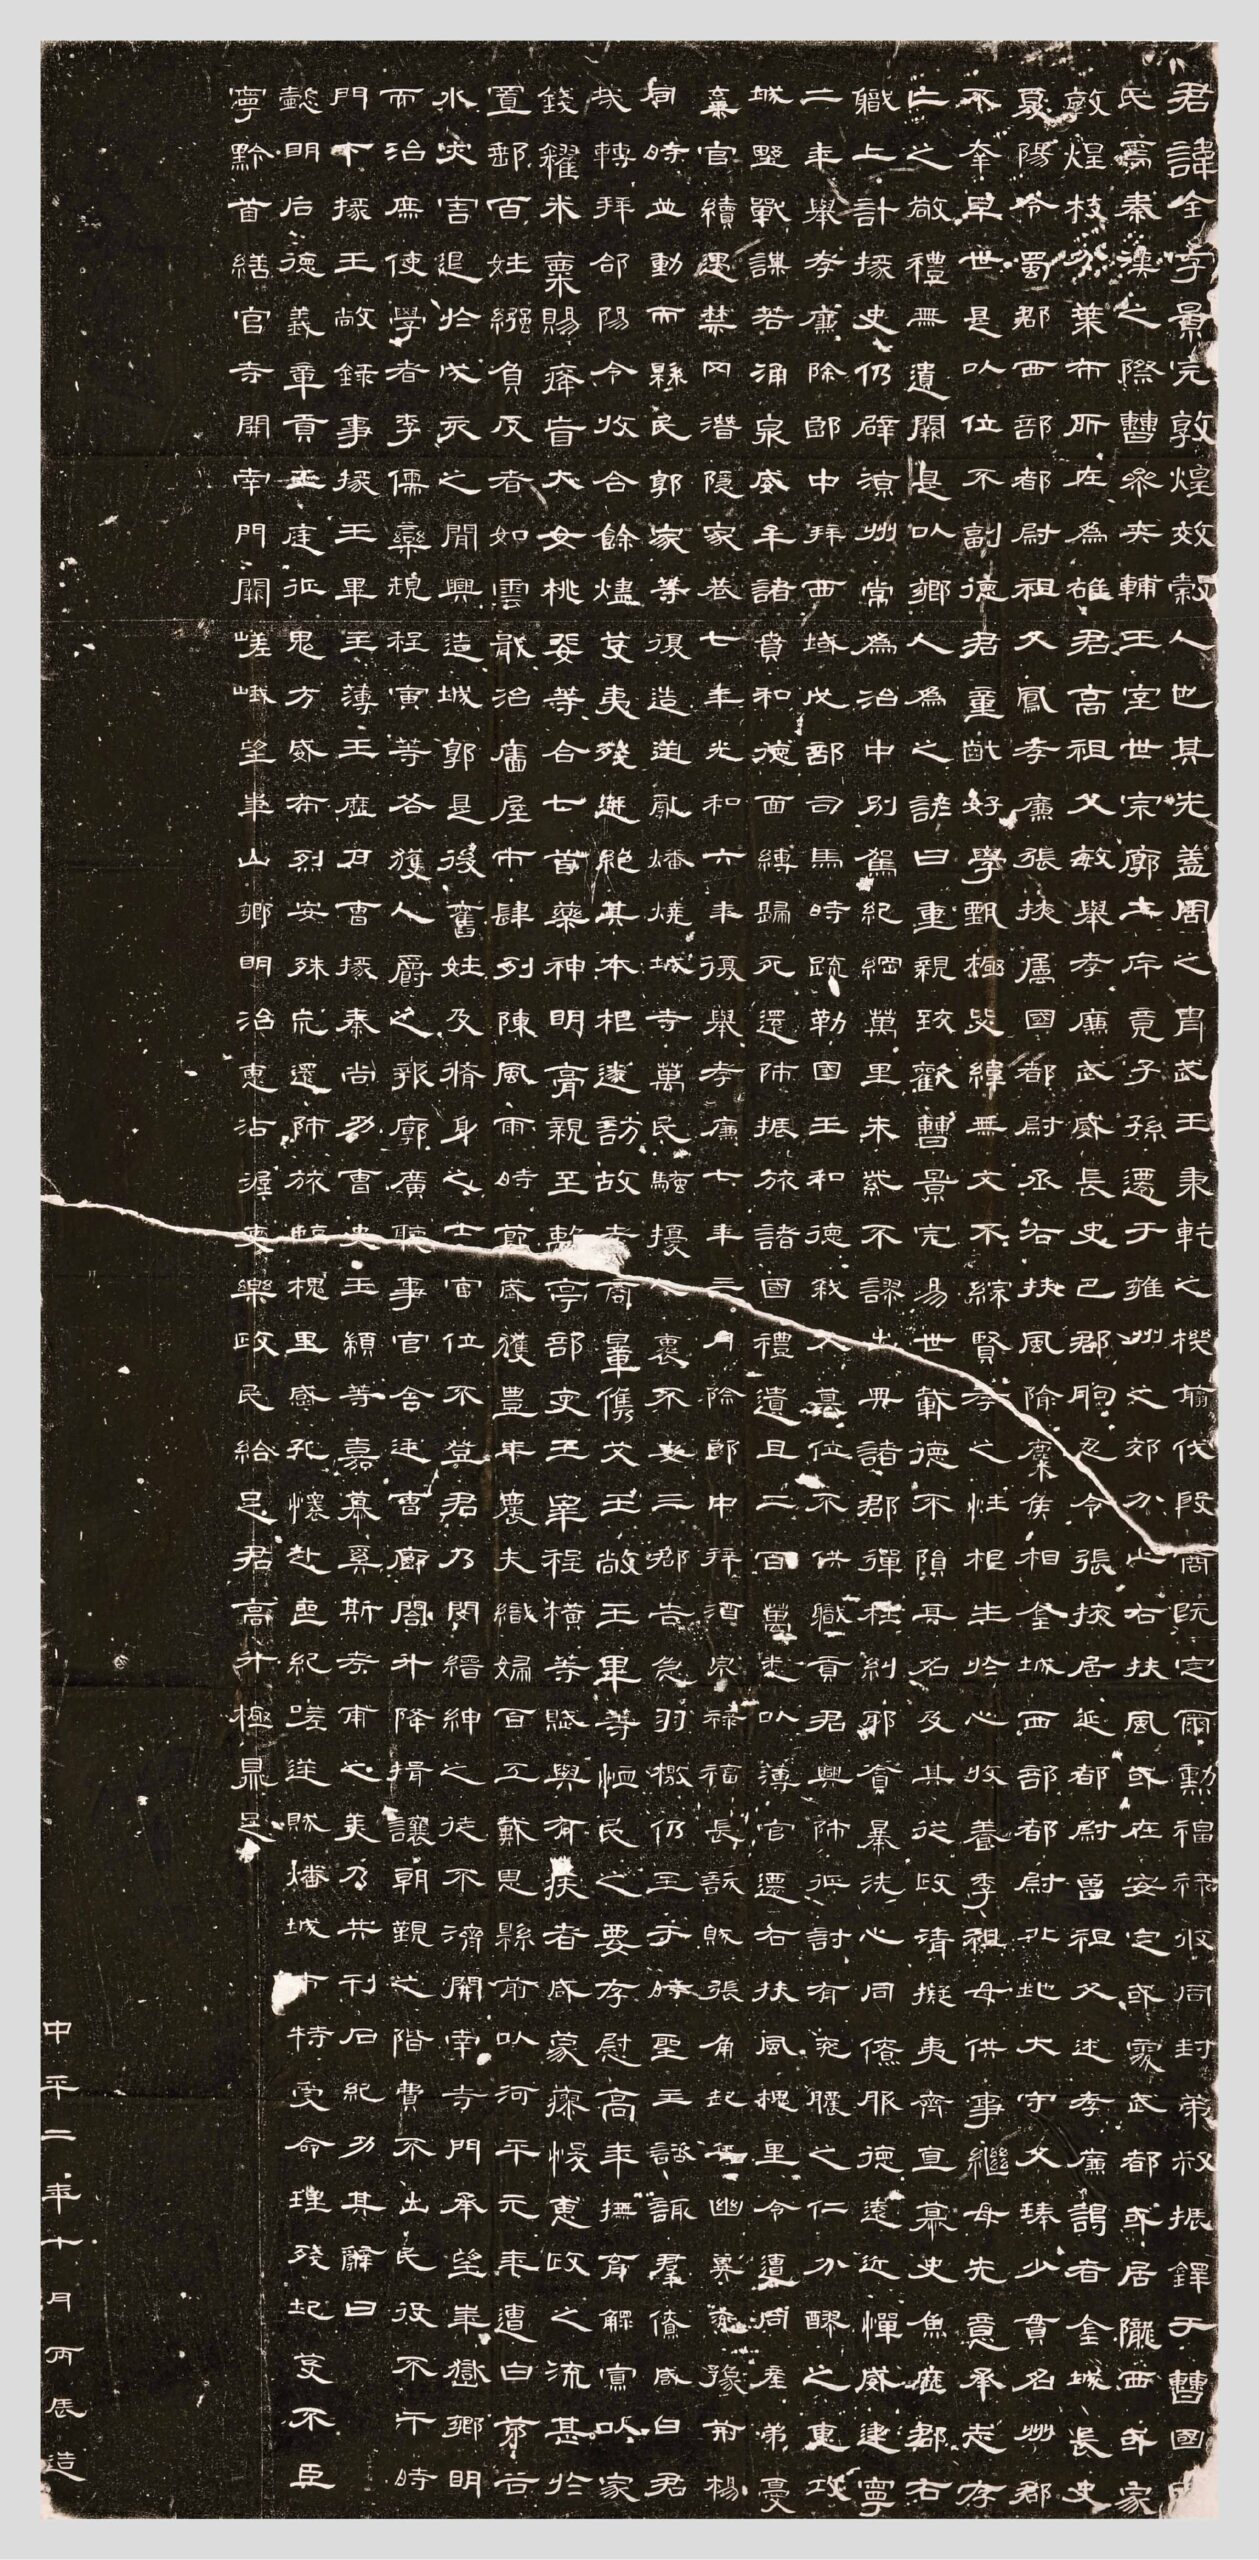 君諱全字景完敦煌效穀人也其先蓋周之胄武王秉乾之機翦伐殷商既定爾勳福祿攸同封弟叔振鐸于曹國
氏焉秦漢之際曹參夾輔王室世宗廓土斥竟子孫遷于雍州之郊分止右扶風或在安定或處武都或居隴西或家
敦煌枝分葉布所在為雄君高祖父敏舉孝廉武威長史巴郡朐忍令張掖居延都尉曾祖父述孝廉謁者金城長史
夏陽令蜀郡西部都尉祖父鳳孝廉張掖屬國都尉丞右扶風隃麋侯相金城西部都尉北地大守父琫少貫名州郡
不幸早世是以位不副德君童齔好學甄極毖緯無文不綜賢孝之性根生於心收養季祖母供事繼母先意承志存
亡之敬禮無遺闕是以鄉人為之諺曰重親致歡曹景完易世載德不隕其名及其從政清擬夷齊直慕史魚歷郡右
職上計掾史仍辟涼州常為治中別駕紀綱萬里朱紫不謬出典諸郡彈枉糾邪貪暴洗心同僚服德遠近憚威建寧
二年舉孝廉除郎中拜西域戊部司馬時疏勒國王和德弒父篡位不供職貢君興師征討有兗膿之仁分醪之惠攻
城野戰謀若涌泉威牟諸賁和德面縛歸死還師振旅諸國禮遺且二百萬悉以簿官遷右扶風槐里令遭同產弟憂
棄官續遇禁冈潛隱家巷七年光和六年復舉孝廉七年三月除郎中拜酒泉祿福長訞賊張角起兵幽冀兗豫荊楊
同時並動而縣民郭家等復造逆亂燔燒城寺萬民騷擾裹不安三郡告急羽檄仍至于時聖主諮諏羣僚咸曰君
哉轉拜郃陽令收合餘燼芟夷殘迸絕其本根遂訪故老商量儁艾王敞王畢等恤民之要存慰高年撫育鰥寡以家
錢糴米粟賜癃盲大女桃婓等合七首藥神明膏親至離亭部吏王宰程橫等賦與有疾者咸蒙瘳悛惠政之流甚於
置郵百姓繦負反者如雲戢治廧屋市肆列陳風雨時節歲獲豐年農夫織婦百工戴恩縣前以河平元年遭白茅谷
水災害退於戍亥之間興造城郭是後舊姓及脩身之士官位不登君乃閔縉紳之徒不濟開南寺門承望華嶽鄉明
而治庶使學者李儒欒規程寅等各獲人爵之報廓廣聽事官舍廷曹廊閤升降揖讓朝覲之階費不出民役不干時
門下掾王敞錄事掾王畢主簿王歷戶曹掾秦尚功曹史王顓等嘉慕奚斯考甫之美乃共刊石紀功其辭曰
懿明后德義章貢王庭征鬼方威布烈安殊巟還師旅臨槐里感孔懷赴喪紀嗟逆賊燔城市特受命理殘圮芟不臣
寧黔首繕官寺開南門闕嵯峨望華山鄉明治惠沾渥吏樂政民給足君高升極鼎足
中平二年十月丙辰造